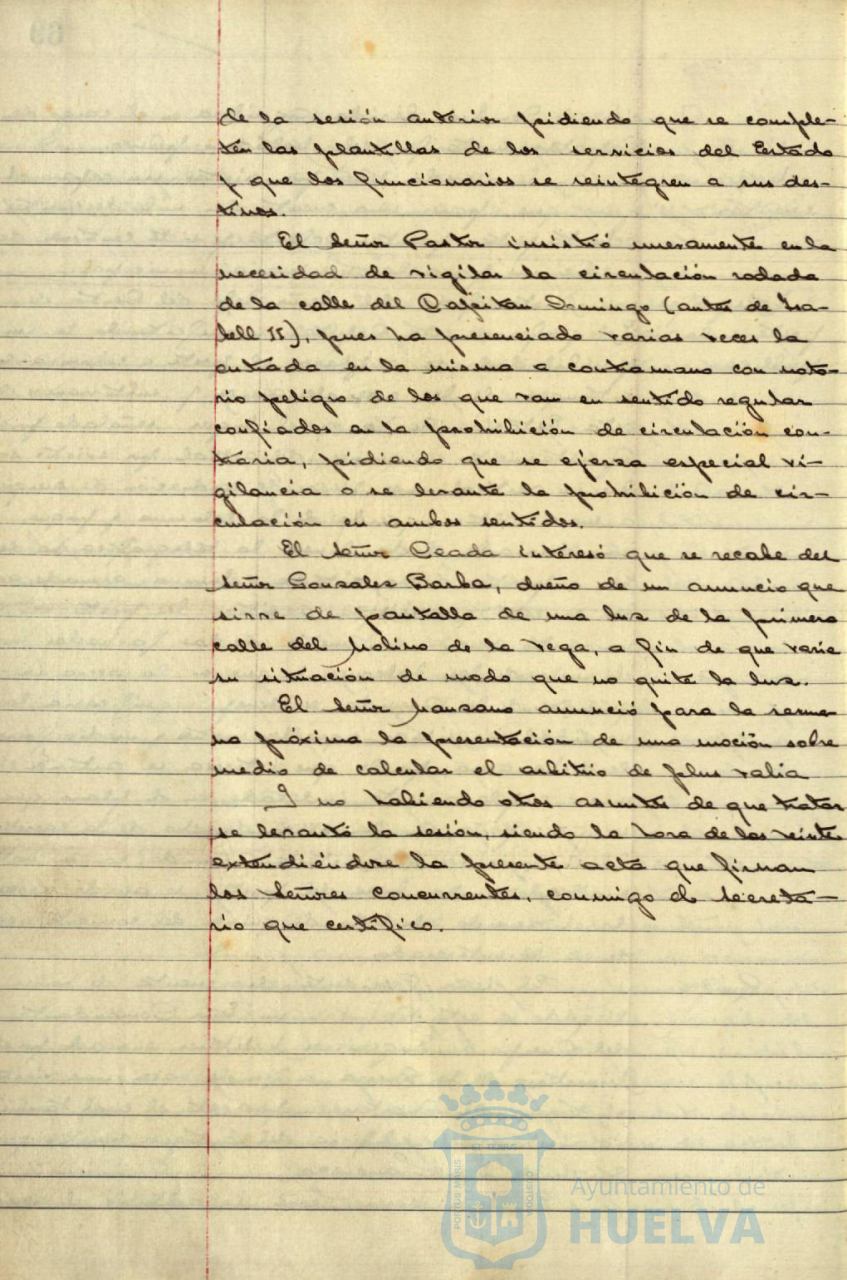 de la sesión anterior pidiendo que se comple-
ten las plantillas de los servicios del Estado
y que los funcionarios se reintegren a sus des-
tinos.
El Señor Pastor insistió nuevamente en la
necesidad de vigilar la circulación rodada
de la calle del Capitán Domingo (antes de Isa-
bel II), pues ha presenciado varias veces la
entrada en la misma a contramano con noto-
rio peligro de los que van en sentido regular
confiados en la prohibición de circulación con-
traria, pidiendo que se ejerza especial vi-
gilancia o se levante la prohibición de cir-
culación en ambos sentidos.
El Señor Ceada interesó que se recabe del
Señor Gonzalez Barba, dueño de un anuncio que
sirve de pantalla de una luz de la primera
calle del Molino de la Vega, a fin de que varie
su situación de modo que no quite la luz.
El Señor Manzano anunció para la sema-
na próxima la presentación de una moción sobre
medio de calcular el arbitrio de plus valia
Y no habiendo otros asuntos de que tratar
se levantó la sesión, siendo la hora de las veinte
extendiéndose la presente acta que firman
los Señores concurrentes, conmigo el Secreta-
rio que certifico.
Ayuntamiento de
HUELVA
PORTUS MARIS
CUSTODIA